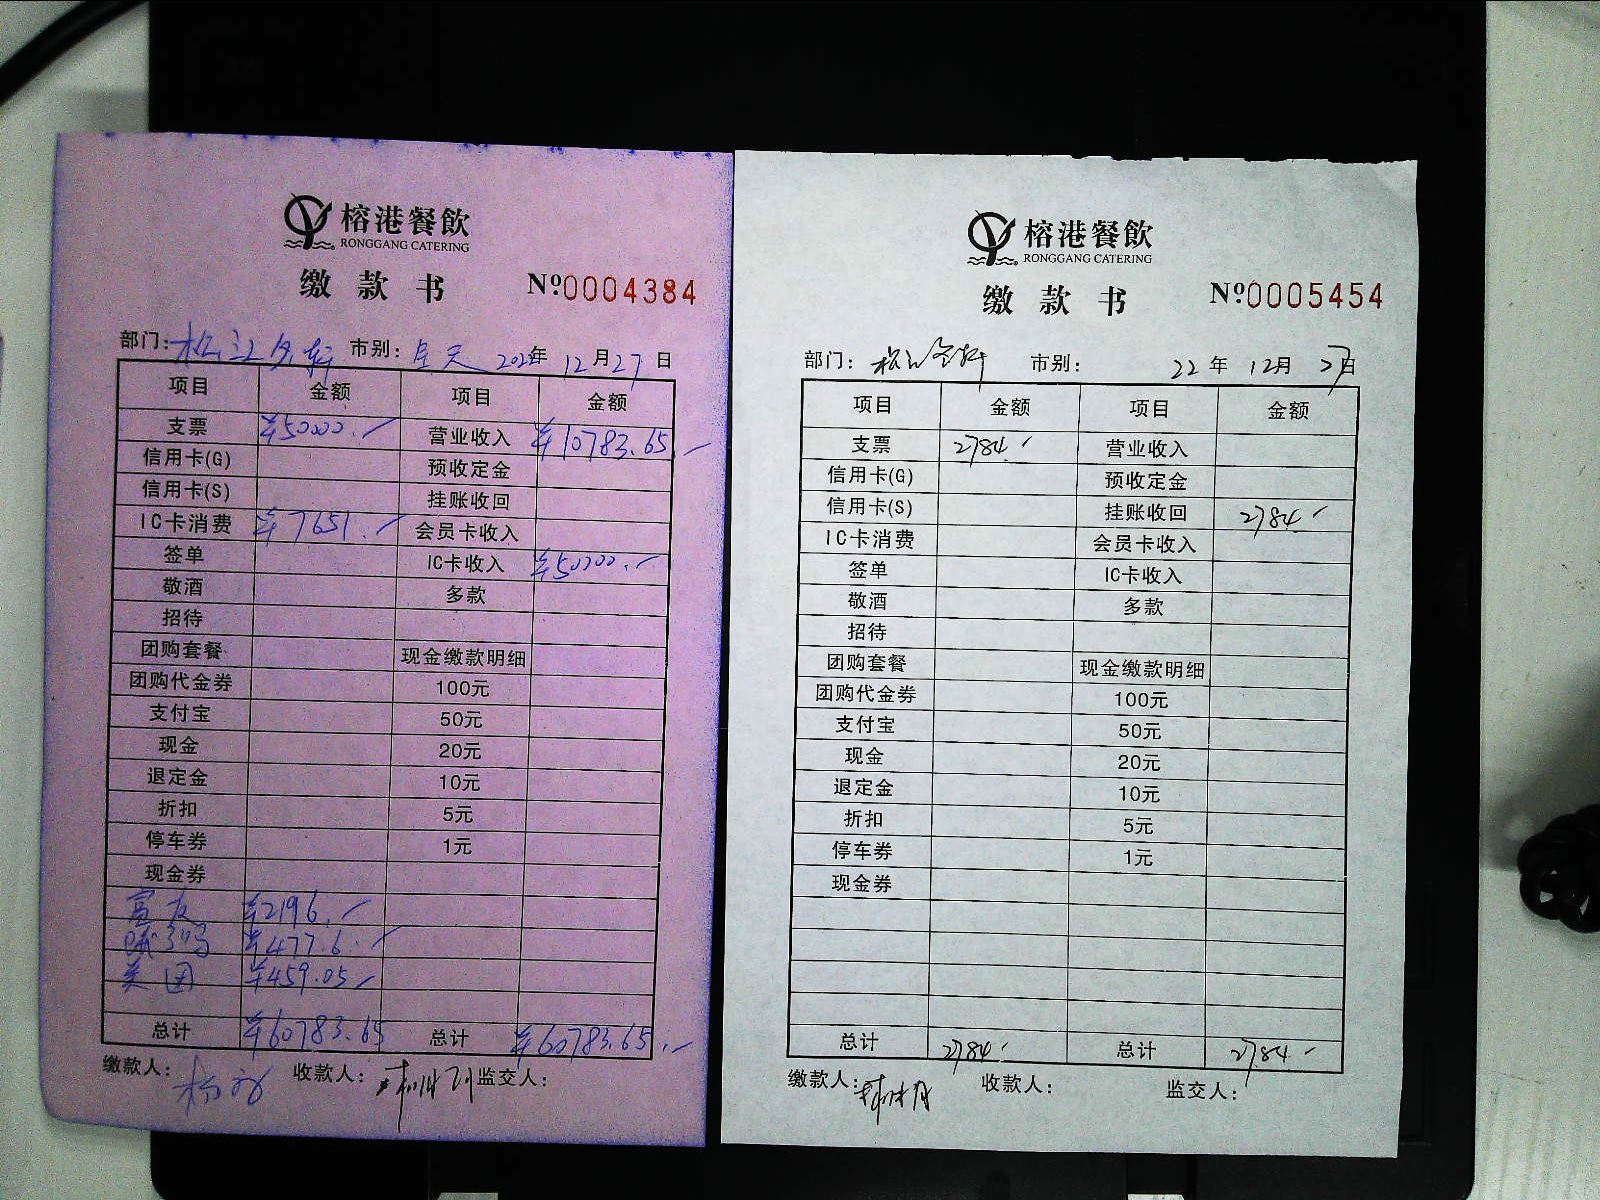 榕港餐飲
RONGGANG CATERING
缴款书 Nº0004384
部门:松江名轩 市别:全天 2022年12月27日
项目 金额 项目 金额
支票 ¥50000. 营业收入 ¥10783.65
信用卡(G) 预收定金
信用卡(S) 挂账收回
IC卡消费 ¥7651. 会员卡收入
签单 IC卡收入 ¥50000.
敬酒 多款
招待
团购套餐 现金缴款明细
团购代金券 100元
支付宝 50元
现金 20元
退定金 10元
折扣 5元
停车券 1元
现金券
富友 ¥2196.
¥477.6.
美团 ¥459.05
总计 ¥60783.65 总计 ¥60783.65.
缴款人: 收款人: 监交人:
榕港餐飲
RONGGANG CATERING
缴款书 Nº0005454
部门:松江名轩 市别: 22年12月27日
项目 金额 项目 金额
支票 2784 营业收入
信用卡(G) 预收定金
信用卡(S) 挂账收回 2784
IC卡消费 会员卡收入
签单 IC卡收入
敬酒 多款
招待
团购套餐 现金缴款明细
团购代金券 100元
支付宝 50元
现金 20元
退定金 10元
折扣 5元
停车券 1元
现金券
总计 2784 总计 2784
缴款人: 收款人: 监交人: